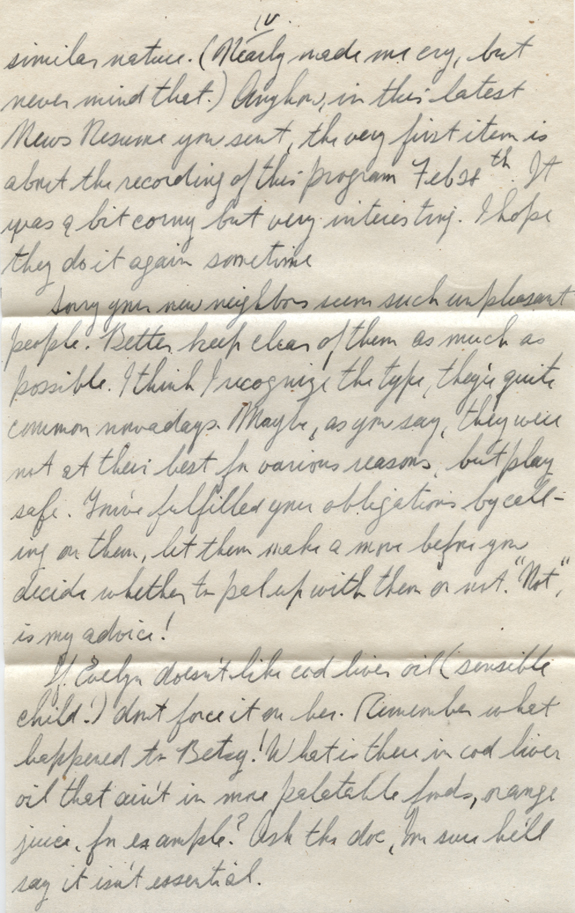 IV.
similar nature. (Nearly made me cry, but
never mind that.) Anyhow, in this latest
News Resume you sent, the very first item is
about the recording of this program Feb 28th. It
was a bit corny but very interesting. I hope
they do it again sometime
Sorry your new neighbors seem such unpleasant
people. Better keep clear of them as much as
possible. I think I recognize the type, they're quite
common nowadays. Maybe, as you say, they were
not at their best for various reasons, but play
safe. You've fulfilled your obligations by call-
ing on them, let them make a move before you
decide whether to pal up with them or not. "Not",
is my advice!
If Evelyn doesn't like cod liver oil (sensible
child!) don't force it on her. Remember what
happened to Betsy! What is there in cod liver
oil that ain't in more palatable foods, orange
juice, for example? Ask the doc, I'm sure he'll
say it isn't essential.